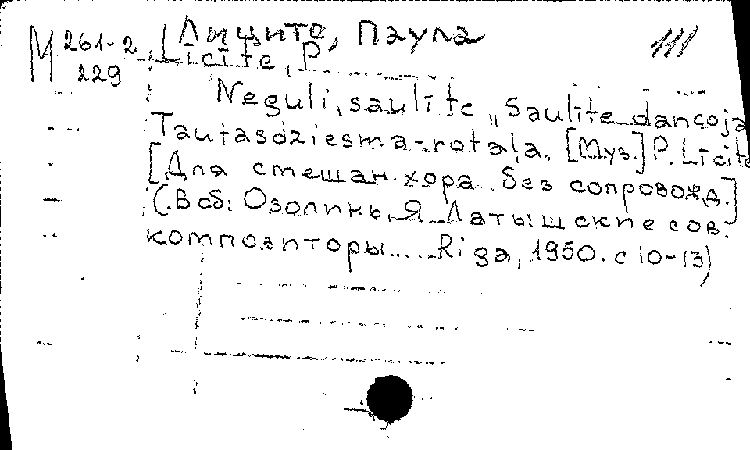 М 261-2 Лиците, Паула III
229 Licite, P.
Neguli, saulīte „Saulīte dancoja
Tautasdziesma-rotaļa. [Муз.] P. Licīte
[Для смешан. хора без сопровожд.]
(В сб: Озолинь, Я. Латышские сов.
композиторы.... Rīga, 1950. с 10-13)